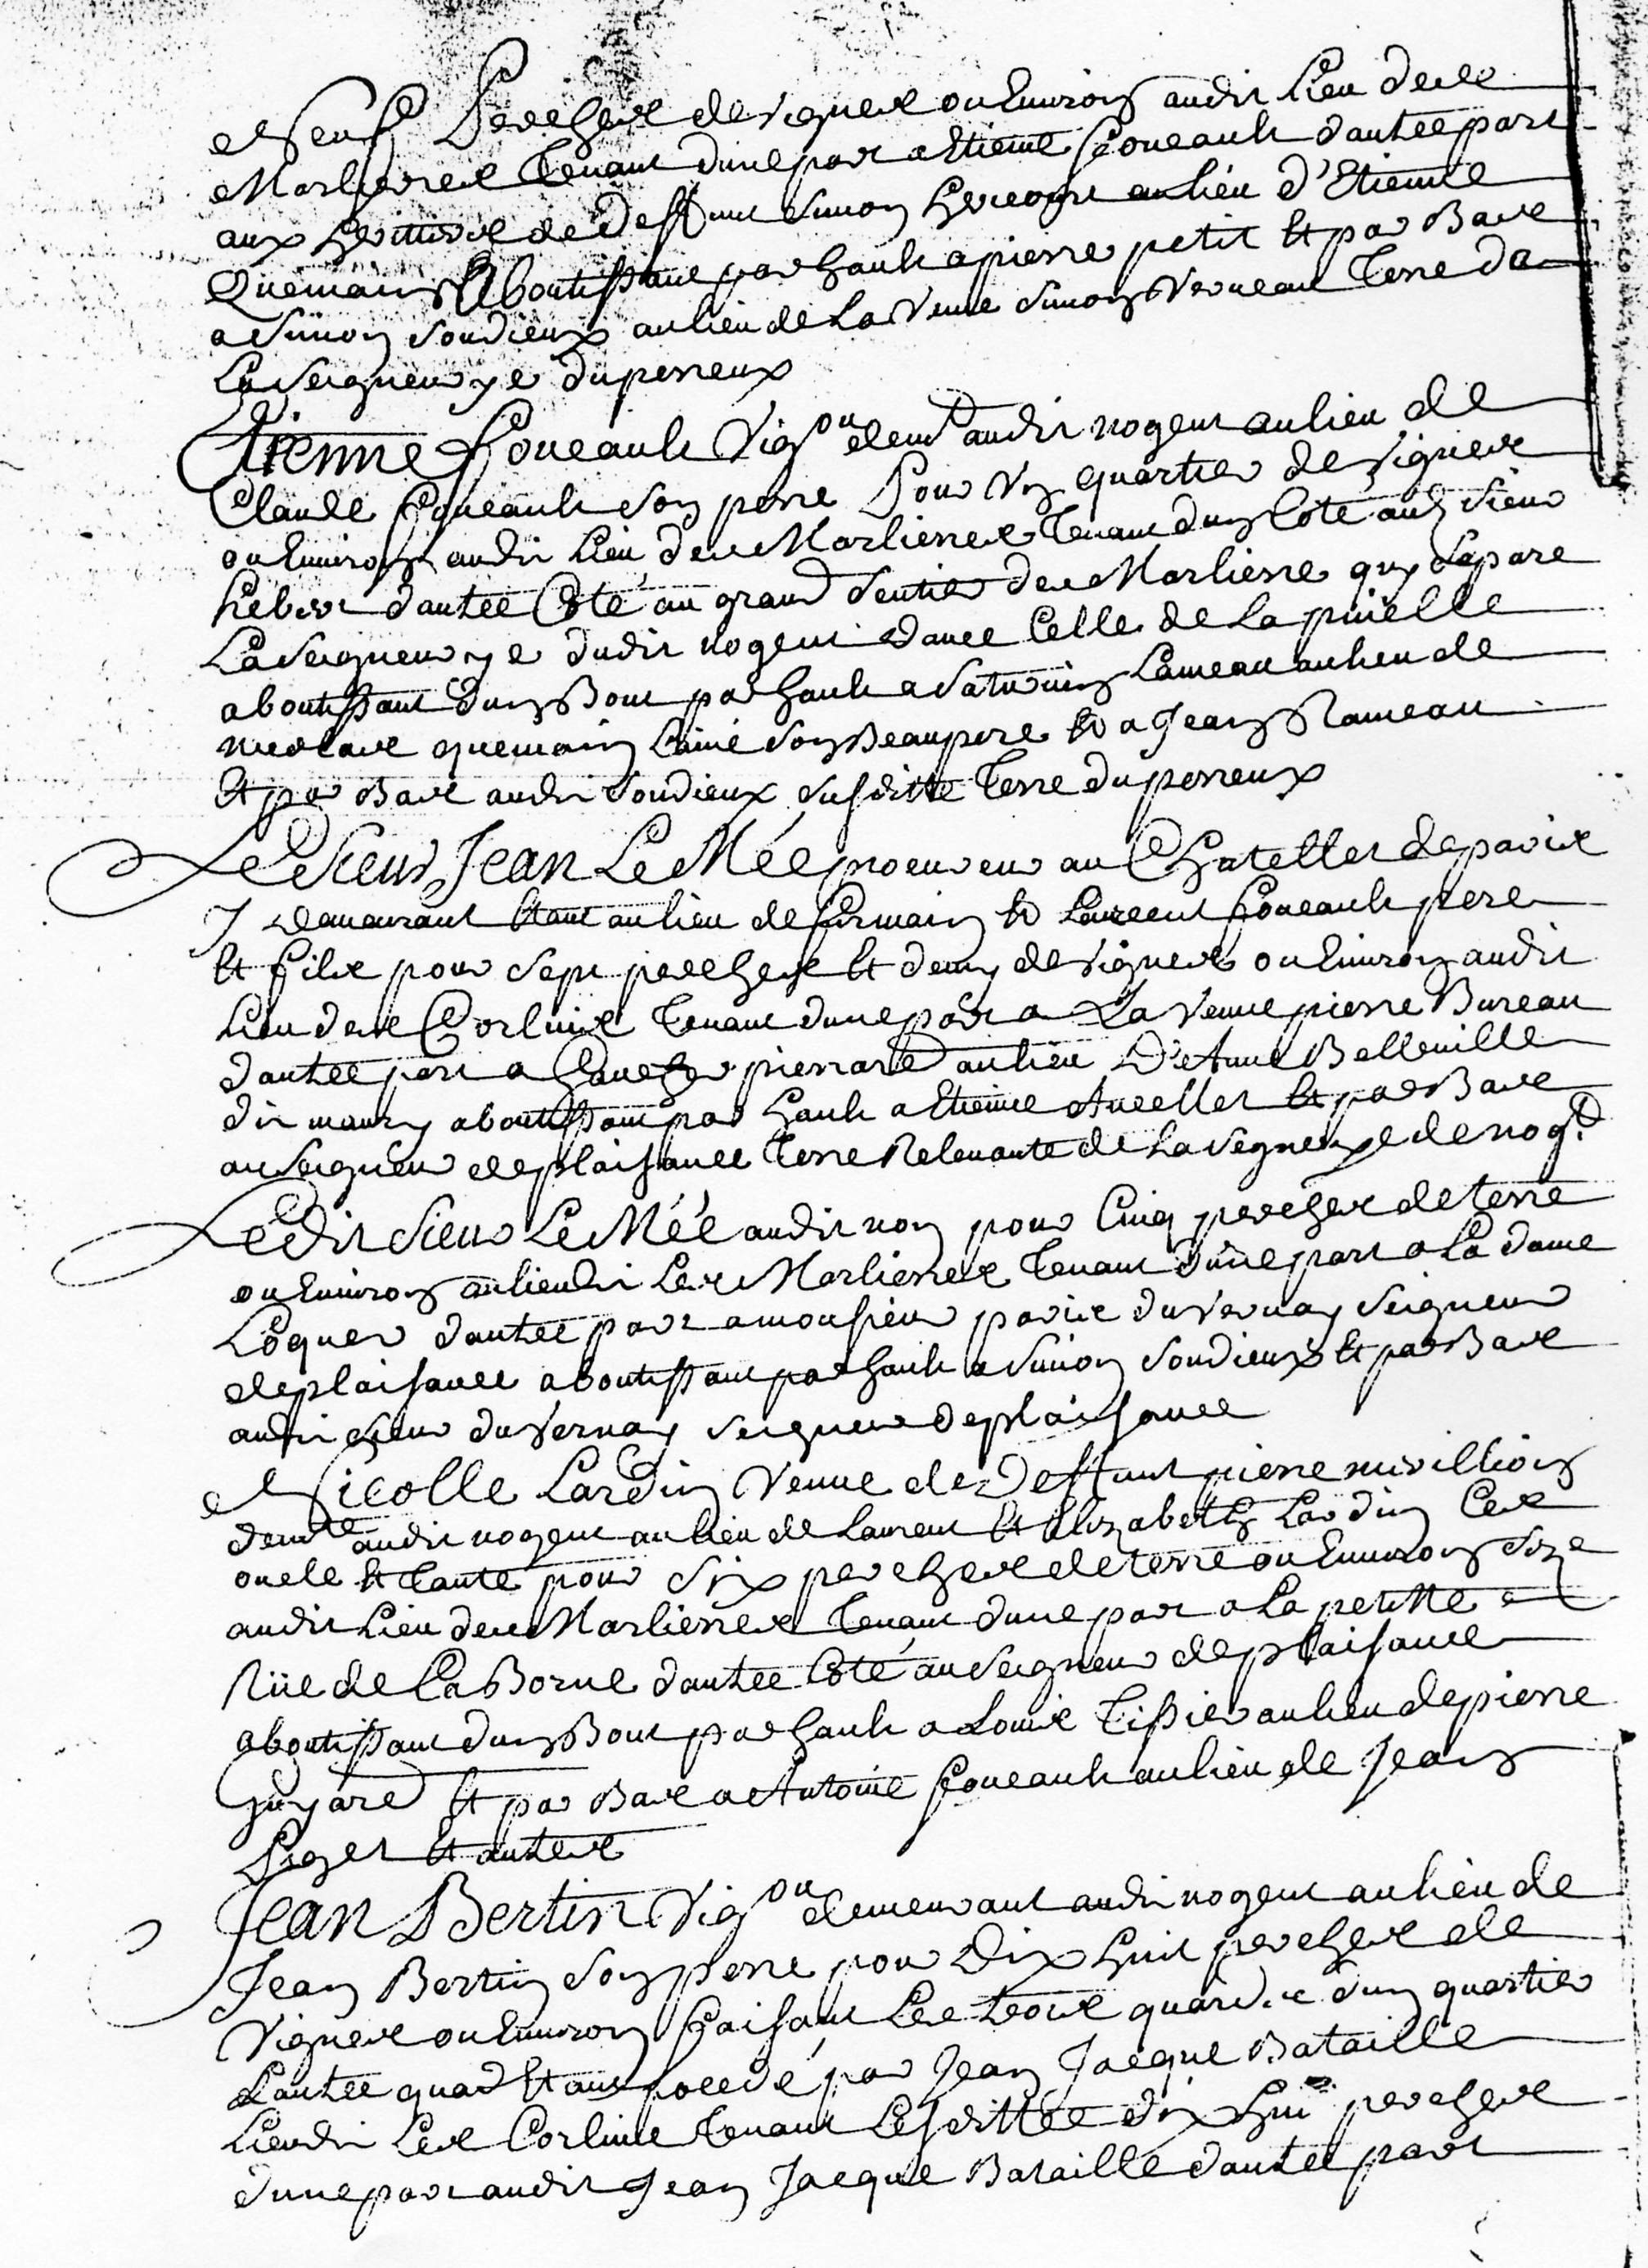 Neuf Perches de vignes ou Environ audit Lieu des
Marlieres Tenant d'une part a Etienne foucault d'autre part
aux heritiers de Deffunt Simon au lieu d'Etienne
Quemain Aboutissant par hault a pierre petit Et par Bas
a Simon Soudieux au lieu de La Veuve Simon Verneau Terre de
La Seigneurye du perreux
Etienne foucault Vig.on dem.t audit nogent au lieu de
Claude foucault Son pere Pour Un quartier de Vignes
ou Environ audit Lieu des Marlieres Tenant d'un Coté aud. Sieur
hebert d'autre Coté au grand Sentier des Marliere quy Separe
La Seigneurye dudit nogent davec Celle de La pinelle
aboutissant d'un Bout par hault a Saturnin Lameau au lieu de
nicolas quemain L'ainé Son Beaupere Et a Jean Rameau
Et par Bas audit Soudieux Susditte Terre du perreux
Le Sieur Jean Le Mée procureur au Chatellet de paris
y demeurant Etant au lieu de Germain Et Laurent foucault pere
Et fils pour Sept perches Et demy de Vignes ou Environ audit
Lieu des Corluis Tenant d'une part a La Veuve pierre Bureau
d'autre part a pierrare au lieu D'Anne Belleville
dit maury aboutissant par hault a Etienne Aucellet Et par Bas
au Seigneur de plaisance Terre Relevante de La Segneurye de nog.t
Ledit Sieur Le Mée audit nom pour Cinq perches de terre
ou Environ au lieudit Les Marlieres Tenant d'une part a La dame
Coquer d'autre part a monsieur paris du Vernay Seigneur
de plaisance aboutissant par hault a Simon Soudieux Et par Bas
audit Sieur du Vernay Seigneur de plaisance
Nicolle Lardin Veuve de Deffunt pierre
dem.te audit nogent au lieu de Laurent Et Elizabeth Lardin Ses
oncle Et Tante pour Six perches de terre ou Environ Size
audit Lieu des Marlieres Tenant d'une part a La petitte
Rüe de La Borne d'autre Coté au Seigneur de plaisance
aboutissant d'un Bout par hault a Louis Tissier au lieu de pierre
Guyard Et par Bas a Antoine foucault au lieu de Jean
Liget Et autres
Jean Bertin Vig.on demeurant audit nogent au lieu de
Jean Bertin Son pere pour Dix huit perches de
Vignes ou Environ faisant Les trois quards d'un quartier
L'autre quard Etant possedé par Jean Jacque Bataille
Lieudit Les Corluis Tenant Lesdittes dix huit perches
d'une part audit Jean Jacque Bataille d'autre part